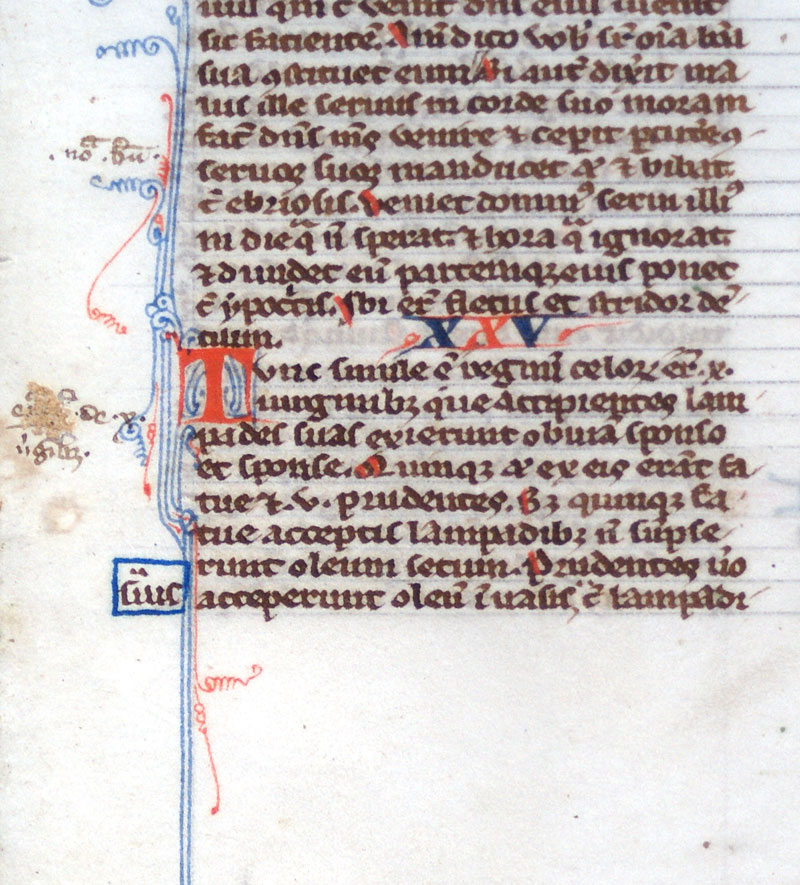 sic facientem. Amen dico vob' qm oia bona
sua ɔstituet eum. Si aut dixerit ma
lus ille seruus in corde suo moram
facit dns ms venire ⁊ ceperit percutere ɔ
seruos suos manducet at ⁊ bibat
cū ebriosis. veniet dominꝰ serui illiꝰ
in die qᵃ n̄ sperat. ⁊ hora qᵃ ignorat.
⁊ diuidet eū partemqꝫ eius ponet
cū ypocritis. Ibi erit fletus et stridor de
tium.
XXV
Tunc simile erit regnum celoꝝ .x.
uirginibꝫ que accipientes lam
pades suas exierunt obuiā sponso
et sponse. Quinqꝫ at ex eis erāt fa
tue ⁊ .v. prudentes. Sꝫ quinqꝫ fa
tue acceptis lampadibꝫ n̄ sūpse
runt oleum secum. Prudentes uo
acceperunt oleū ī uasis cū lampadi
no bn
de .x.
uginibꝫ
suis